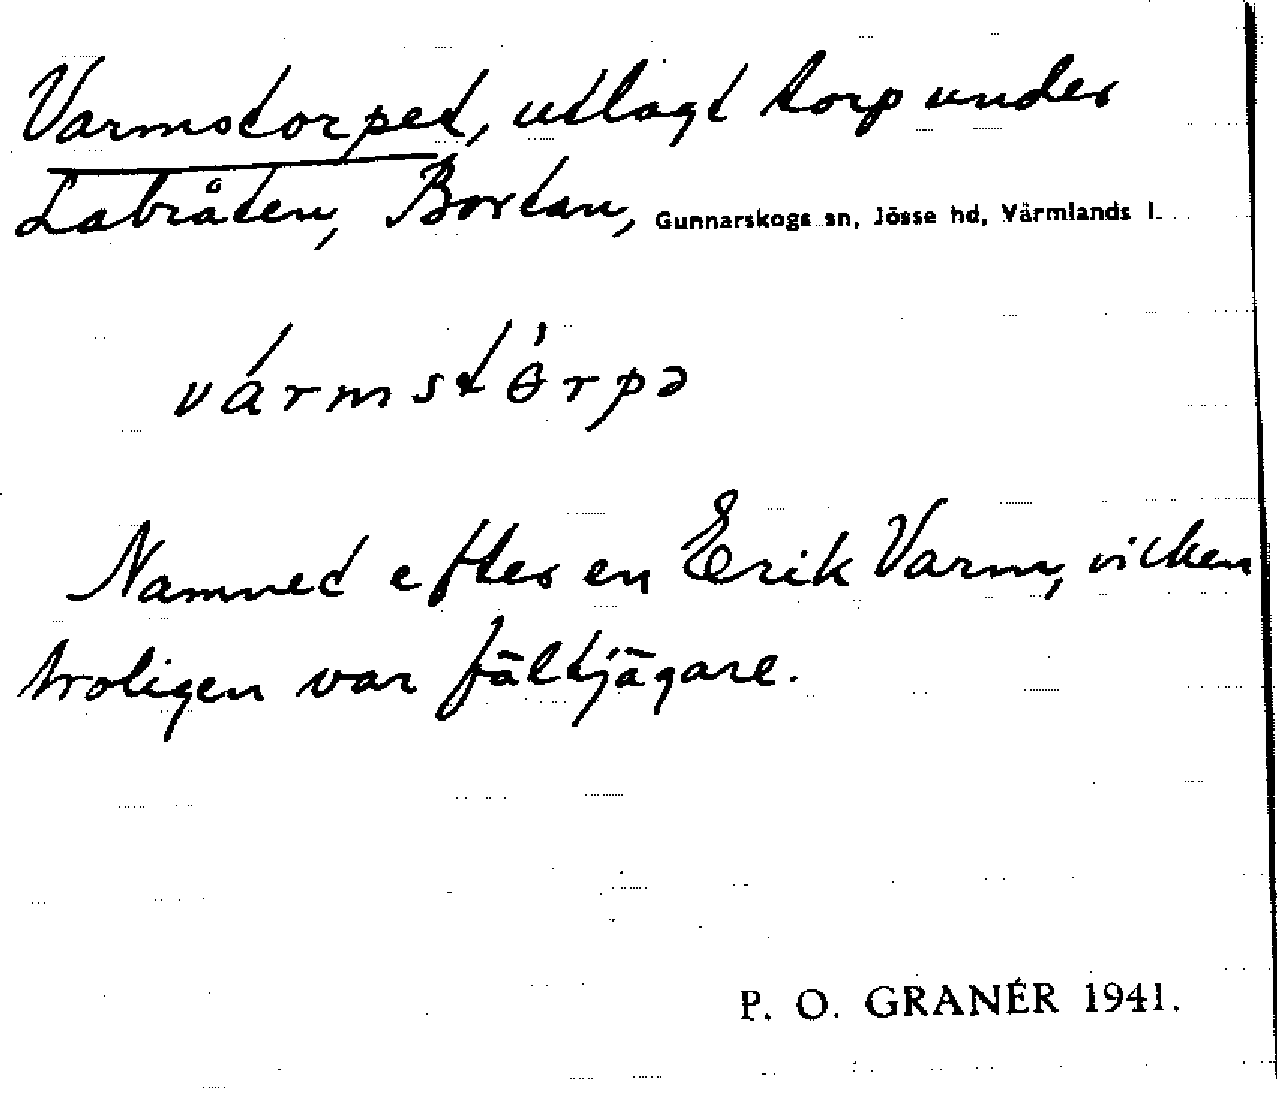 Varmstorpet, utlagt torp under
Labråten, Bortan, Gunnarskogs sn, Jösse hd, Värmlands l.
vármstɵ́rpə
Namnet efter en Erik Varm, vilken
troligen var fältjägare.
P. O. GRANÉR 1941.